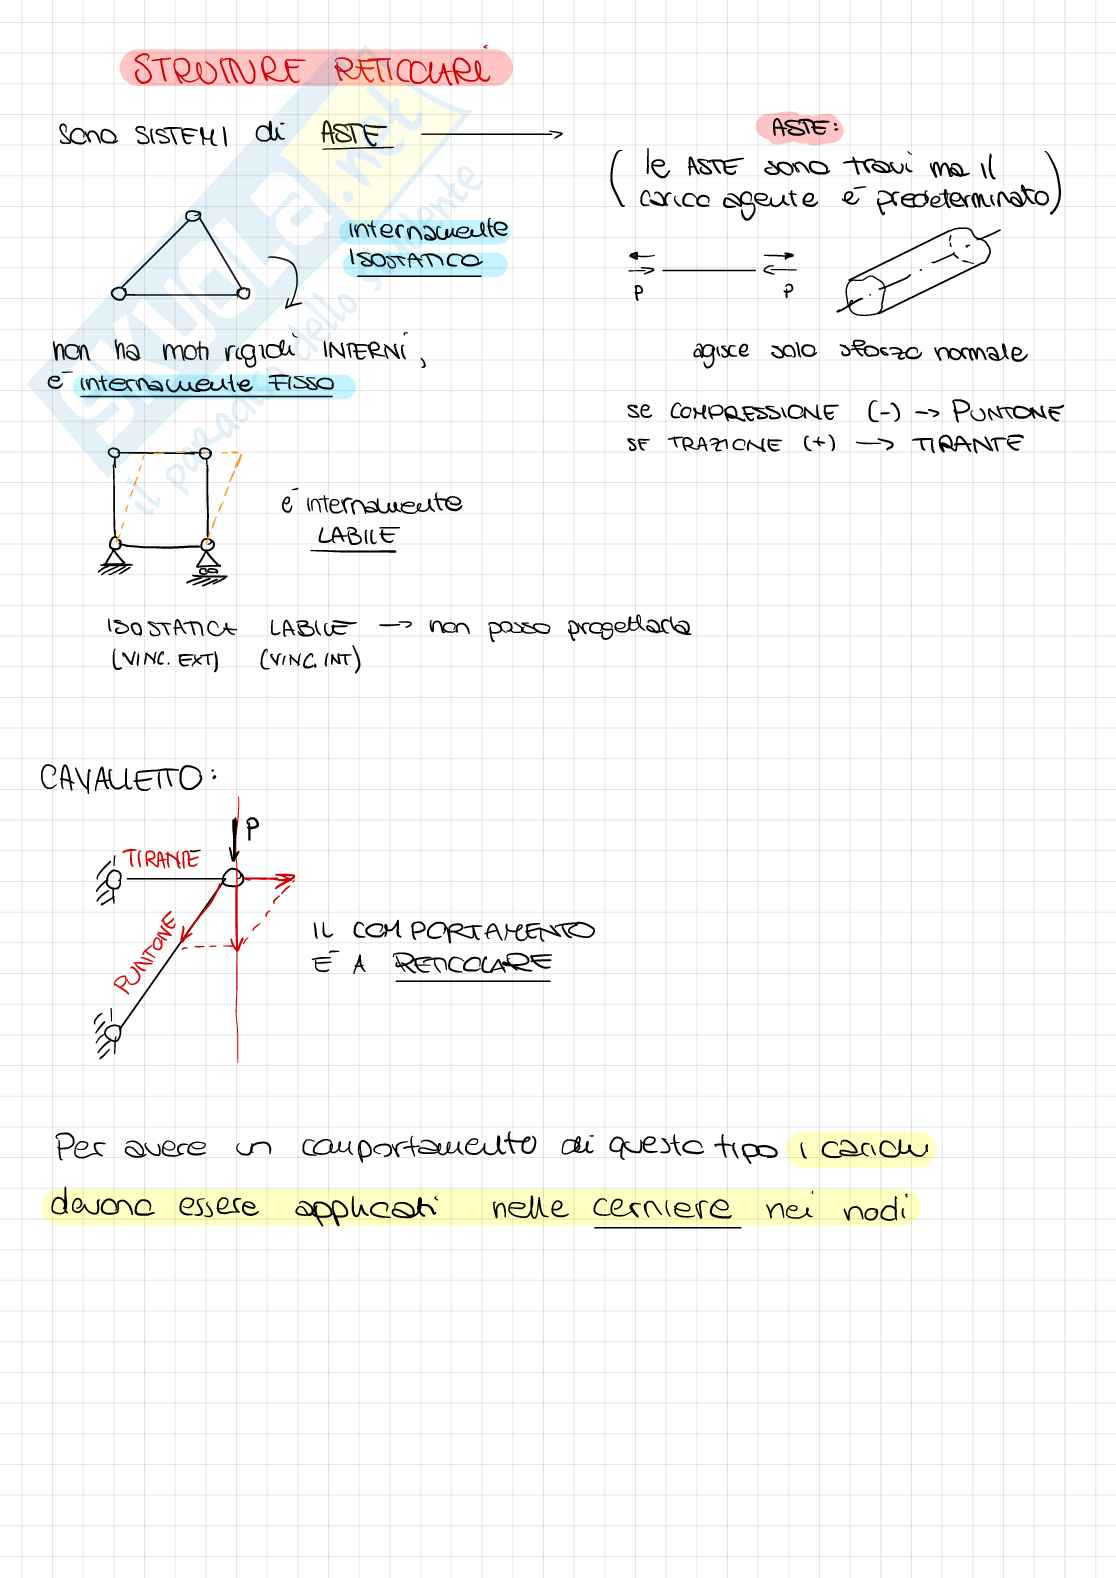 STRUTTURE RETICOLARI
sono SISTEMI di ASTE
ASTE:
(le ASTE sono travi ma il
carico agente è predeterminato)
internamente
ISOSTATICO
P P
non ha moti rigidi INTERNI,
è internamente FISSO
agisce solo sforzo normale
se COMPRESSIONE (-) → PUNTONE
SE TRAZIONE (+) → TIRANTE
è internamente
LABILE
ISOSTATICA LABILE → non posso progettarla
(VINC. EXT) (VINC. INT)
CAVALLETTO:
P
TIRANTE
PUNTONE
IL COMPORTAMENTO
È A RETICOLARE
Per avere un comportamento di questo tipo i carichi
devono essere applicati nelle cerniere nei nodi
SKUOLA.net
il paradiso dello studente